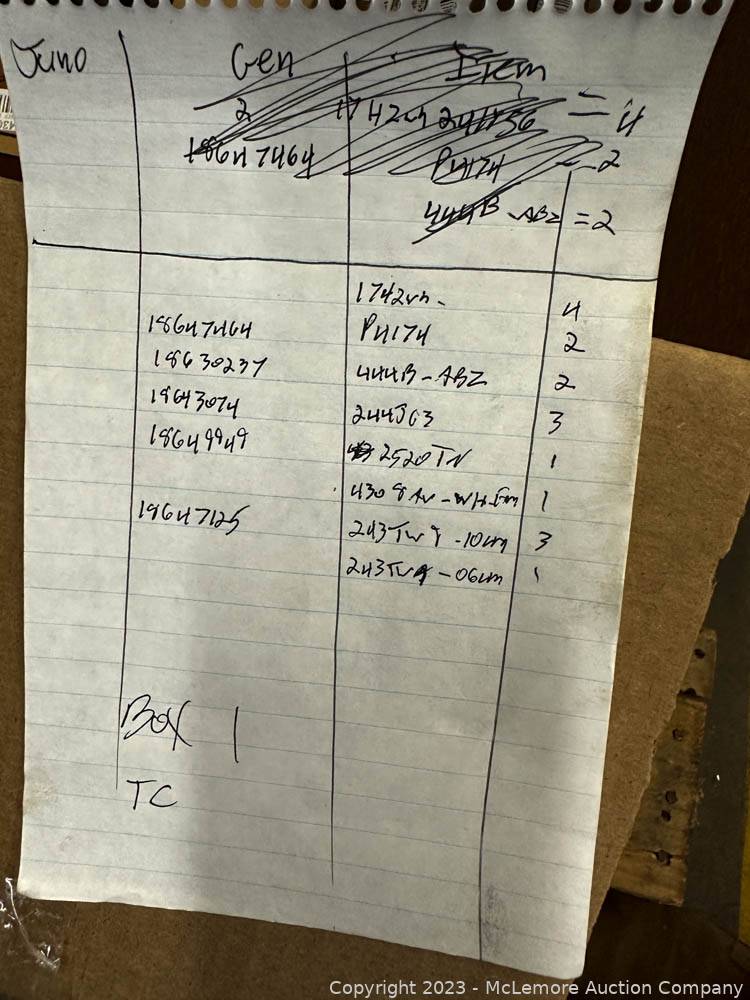 Juno Gen Item
2 1742wh 241756 = 4
18647464 P4174 - 2
444B - ABZ = 2
1742wh - 4
18647464 P4174 2
18630237 444B - ABZ 2
18643074 244JG3 3
18649949 2520TN 1
4308 - WH-Em 1
18647125 243TW9 - 10um 3
243TW9 - 06um 1
Box 1
TC
Copyright 2023 - McLemore Auction Company